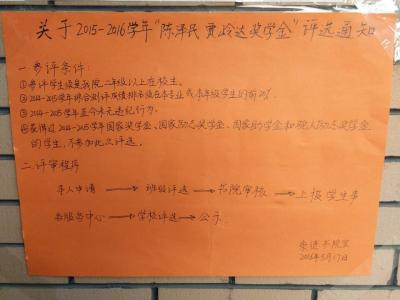 关于2015-2016学年“陈泽民 贾岭达奖学金”评选通知
一.参评条件:
①参评学生须是我院二年级以上在校生。
②2014-2015学年综合测评成绩排名须在本专业或本年级学生的前20%。
③2014-2015学年至今未无违纪行为。
④获得过2014-2015学年国家奖学金、国家励志奖学金、国家助学金和
的学生,不参加此次评选。
二.评审程序
本人申请 → 班级评选 → 书院审核 → 上报学生事
务服务中心 → 学校评选 → 公示.
2016年5月17日